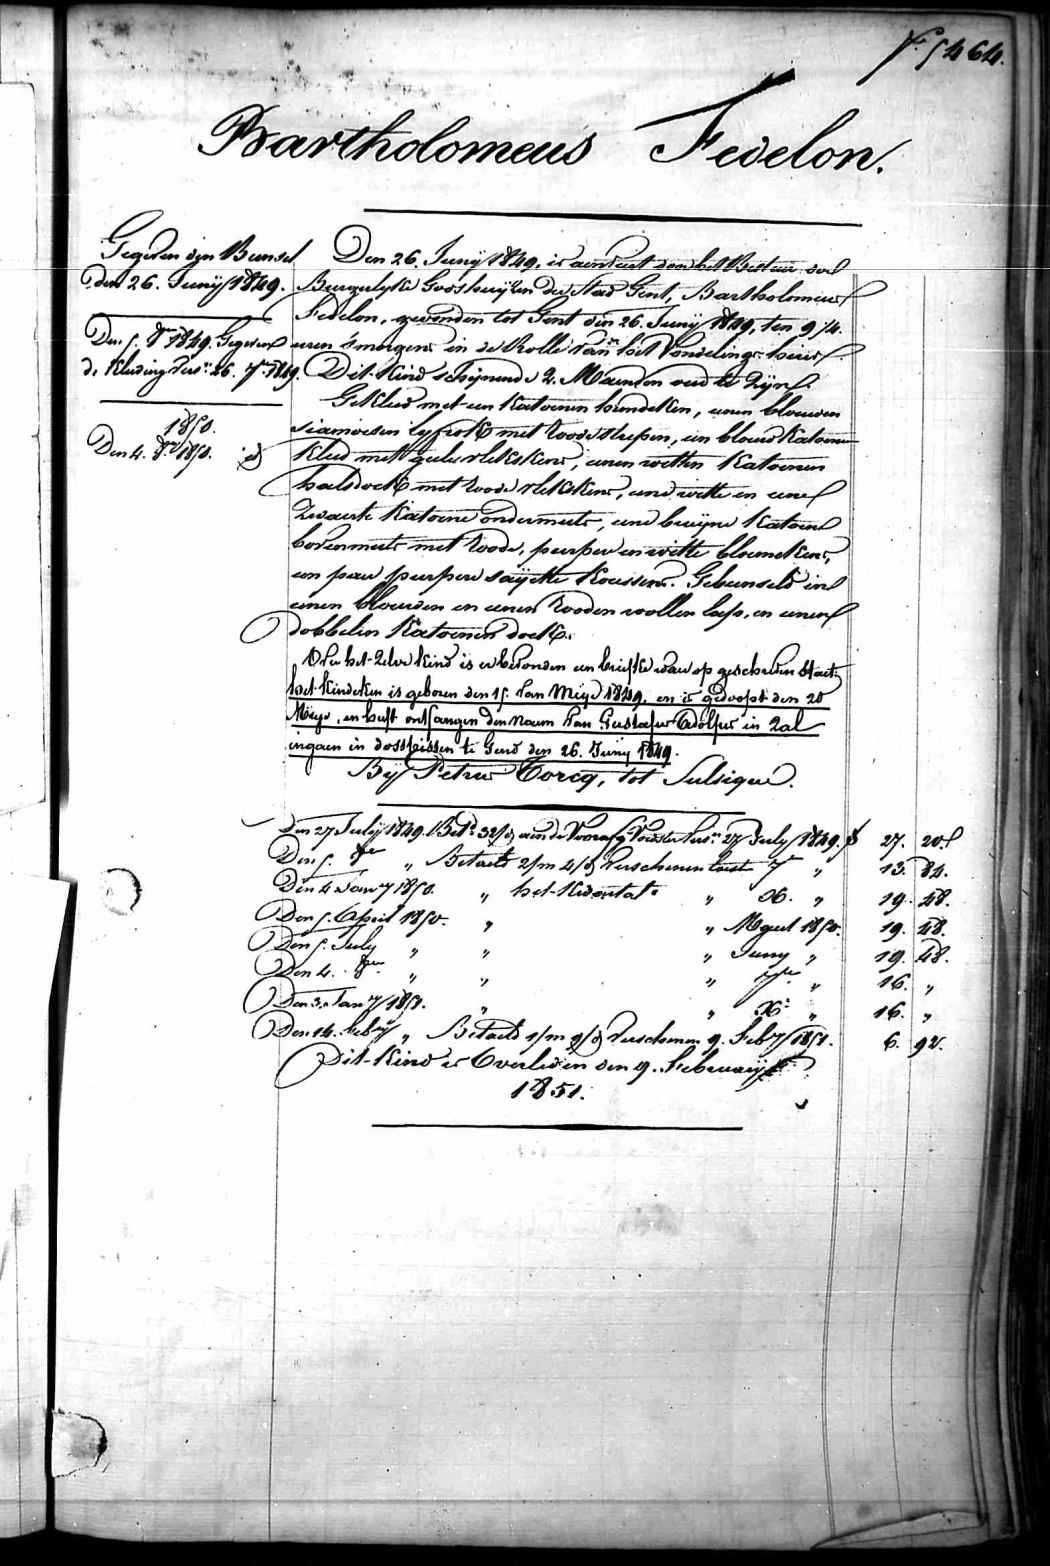 N.º 5464.
Bartholomeus Fedelon.
Gegeven dijn Bunsel
den 26. Junij 1849.
Den 5. 8.re 1849. Gegeven
de Kleding vers.n 26. 7.re 1849.
1850.
Den 4. 8.re 1850. id
Den 26. Junij 1849. is aenveert door het Bestuur der
Burgelyke Godshuyzen der Stad Gent, Bartholomeus
Fedelon, gevonden tot Gent den 26. Junij 1849, ten 9 1/4
uren smorgens in de Rolle van het Vondelings-huis.
Dit Kind schijnende 2. Maenden oud te Zijn.
Gekleed met een Katoenen hemdeken, eenen blauwen
siamoesen lyfrok met roode strepen, een blauw Katoenen
Kleed met geele vlekskens, eenen witten Katoenen
halsdoek met roode vlekskens, eene witte en eene
Zwarte Katoene ondermuts, eene bruyne Katoene
bovenmuts met roode, purper en witte bloemekens,
een paer purpere sayette Koussens. Gebunseld in
eenen blauwen en eenen rooden wollen laps, en eenen
dobbelen Katoenen doek.
Over het Zelve Kind is er bevonden een briefke waer op geschreven staet:
het Kindeken is geboren den 15 van Meye 1849. en is gedoopt den 20
Meye, en heeft ontfangen den Naem van Gustavus Adolfus in Zal
ingaen in dosseissen te Gend den 26. Juny 1849.
Bij Petrus Torcq, tot Sulsique.
Den 27 July 1849. Bet.d 32/d aen de Voorafg. Voedster vers.n 27 July 1849. f 27. 20
Den 5. 8.re " Betaeld 2/m 4/d verschenen lest 7.re " 13. 84.
Den 4 Jan.y 1850. " het Kwartael " X.re " 19. 48.
Den 5. April 1850. " " Maert 1850. 19. 48.
Den 5. July " " " Juny " 19. 48.
Den 4. 8.re " " " 7.re " 16. "
Den 3. Jan.y 1851. " " X.re " 16. "
Den 14. feb.y " Betaeld 1/m 9/d verschenen 9. Feb.y 1851. 6. 92.
Dit Kind is Overleden den 9. Februarij
1851.